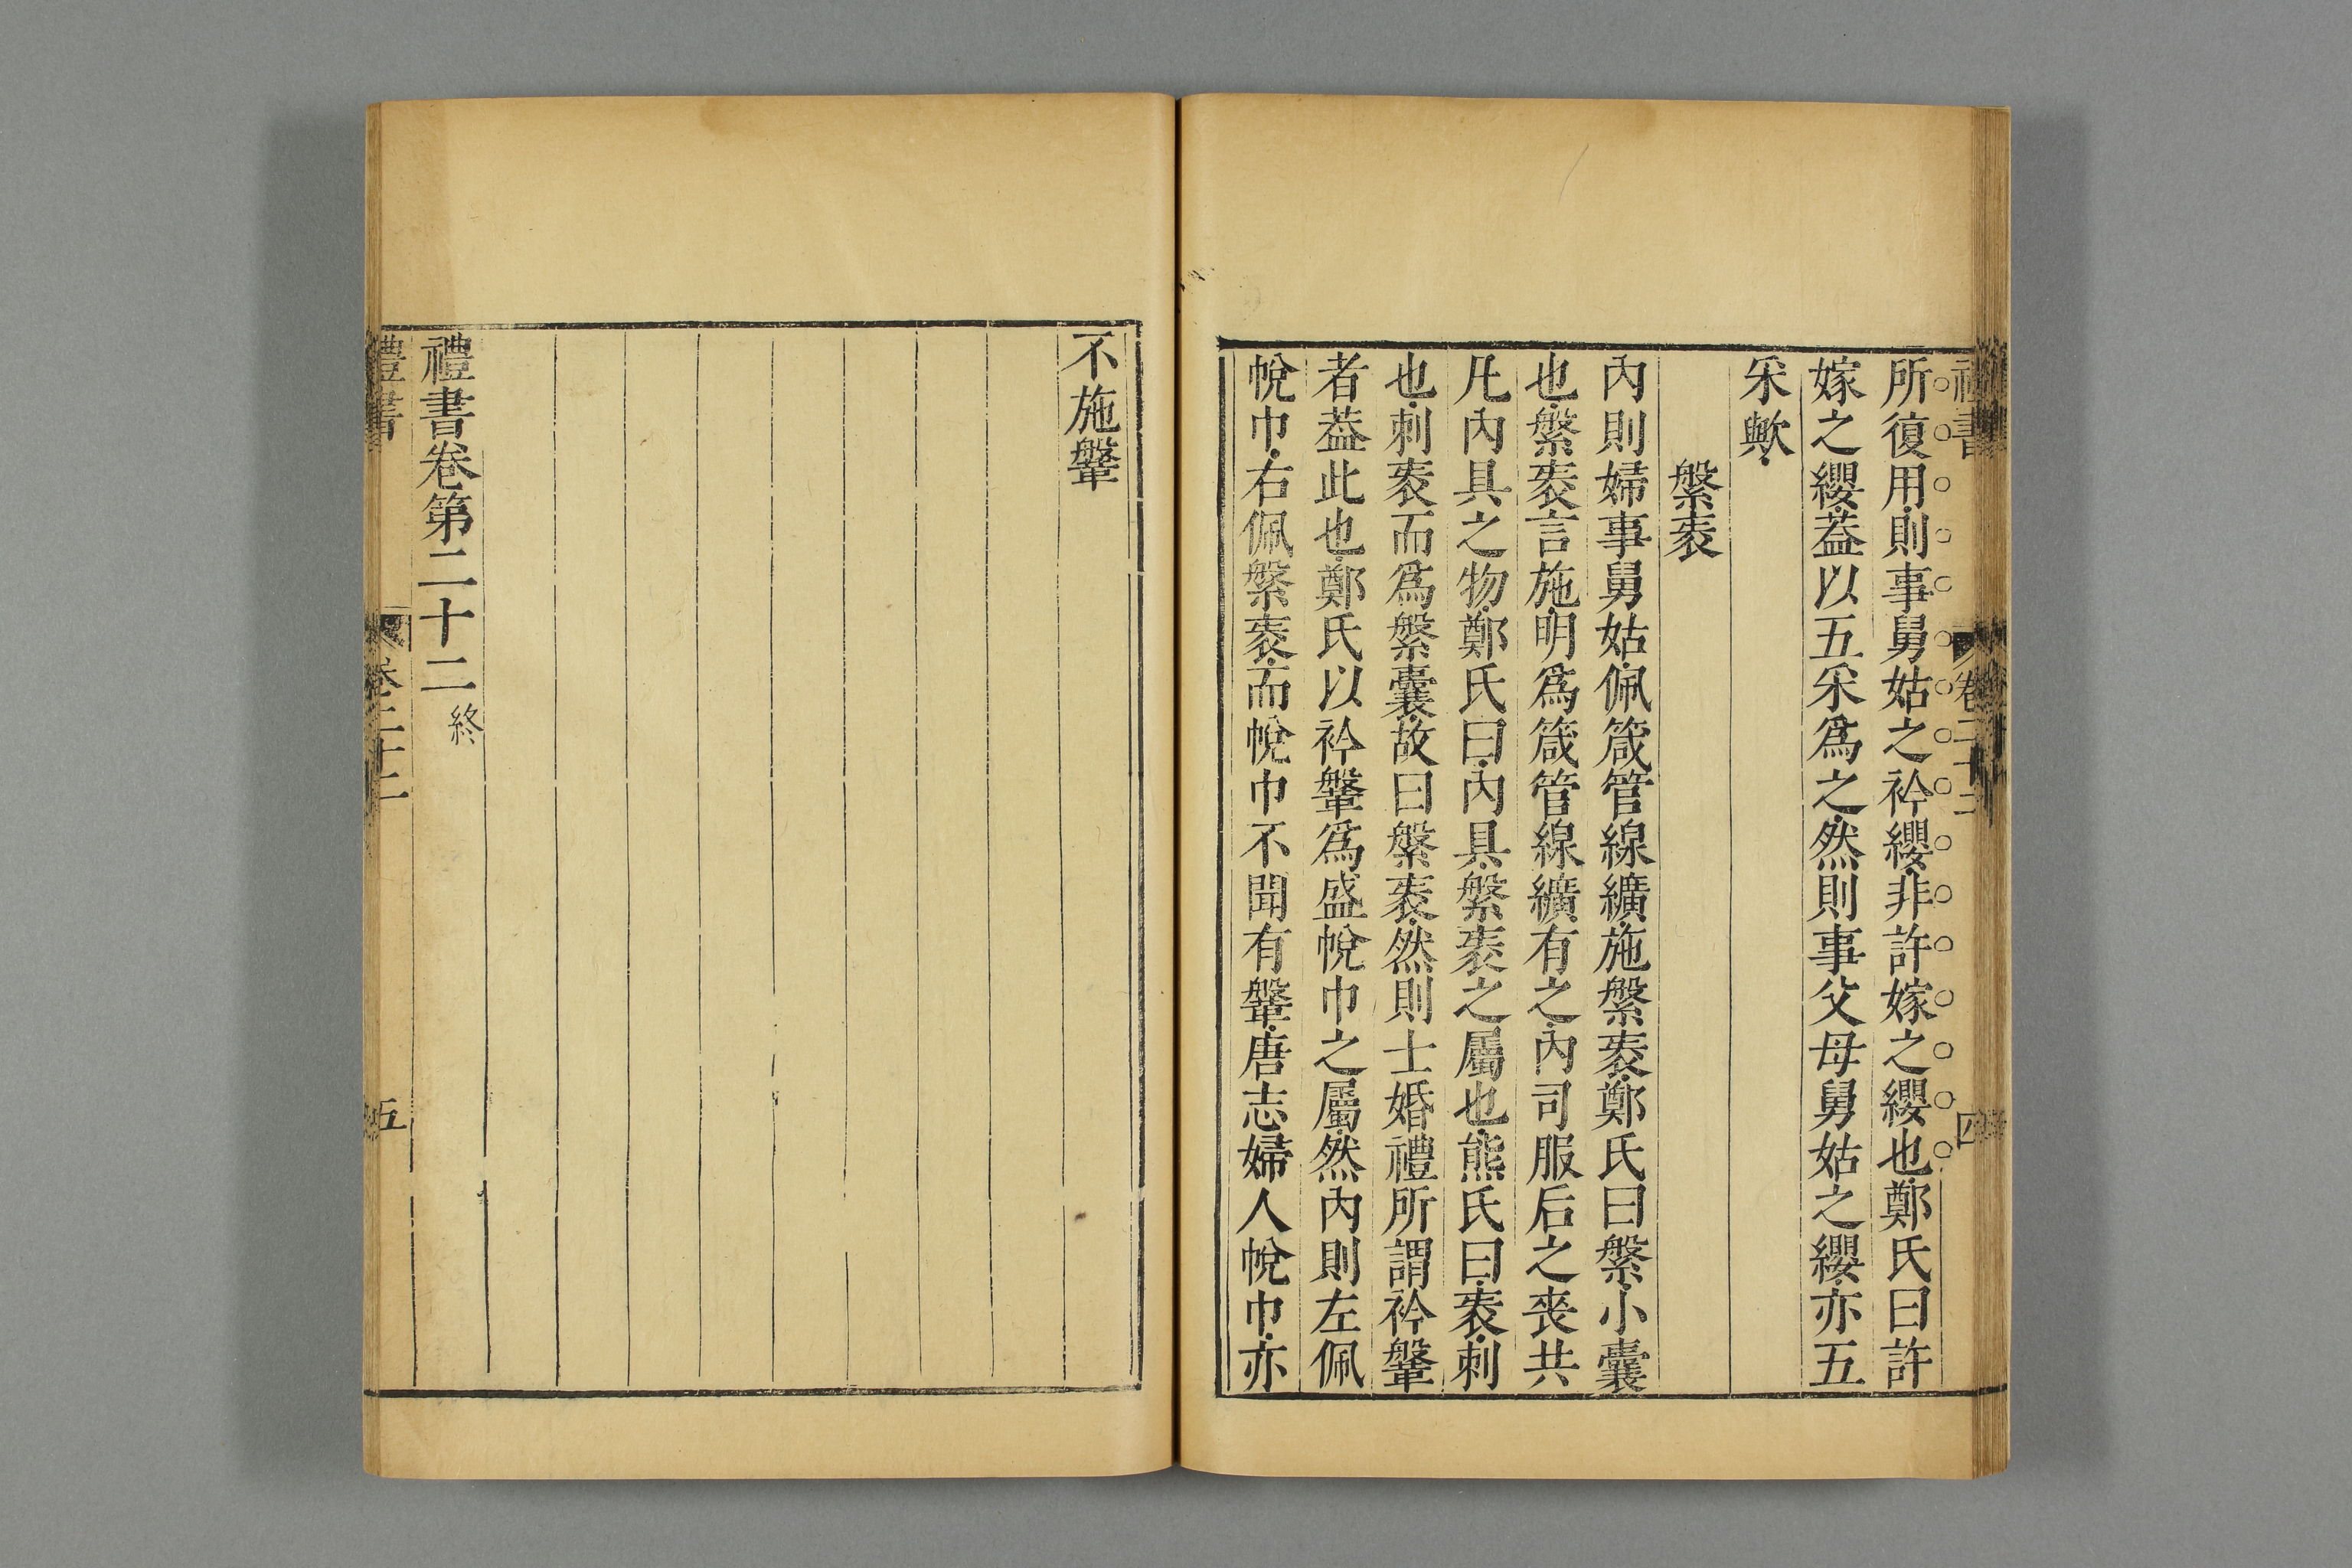 禮書 卷二十二 四
所復用則事舅姑之衿纓非許嫁之纓也鄭氏曰許
嫁之纓蓋以五采爲之然則事父母舅姑之纓亦五
采歟
縏袠
內則婦事舅姑佩箴管線纊施縏袠鄭氏曰縏小囊
也縏袠言施明爲箴管線纊有之內司服后之丧共
凡內具之物鄭氏曰內具縏袠之屬也熊氏曰袠刺
也刺袠而爲縏囊故曰縏袠然則士婚禮所謂衿鞶
者葢此也鄭氏以衿鞶爲盛帨巾之屬然內則左佩
帨巾右佩縏袠而帨巾不聞有鞶唐志婦人帨巾亦
不施鞶
禮書卷第二十二終
禮書 卷二十二 五